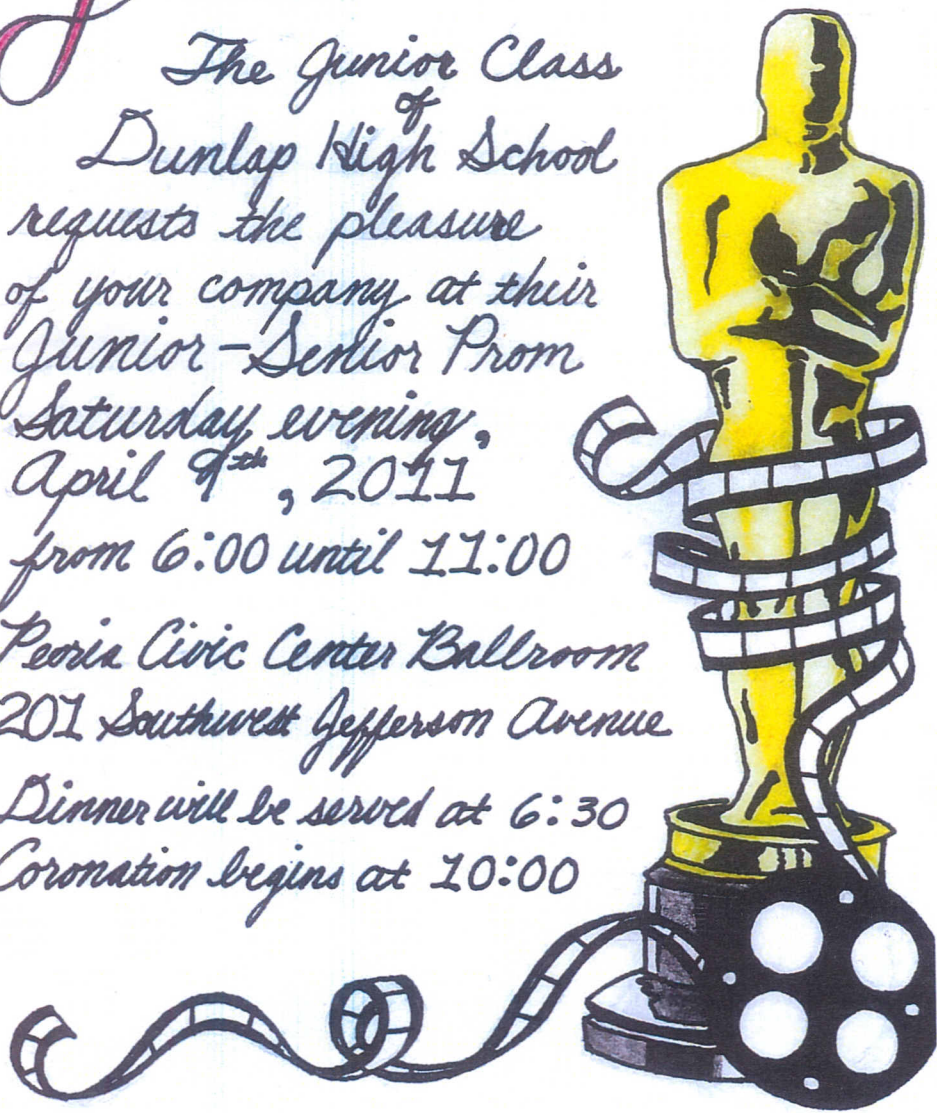 The Junior Class
of
Dunlap High School
requests the pleasure
of your company at their
Junior-Senior Prom
Saturday evening,
April 9th, 2011
from 6:00 until 11:00
Peoria Civic Center Ballroom
201 Southwest Jefferson Avenue
Dinner will be served at 6:30
Coronation begins at 10:00